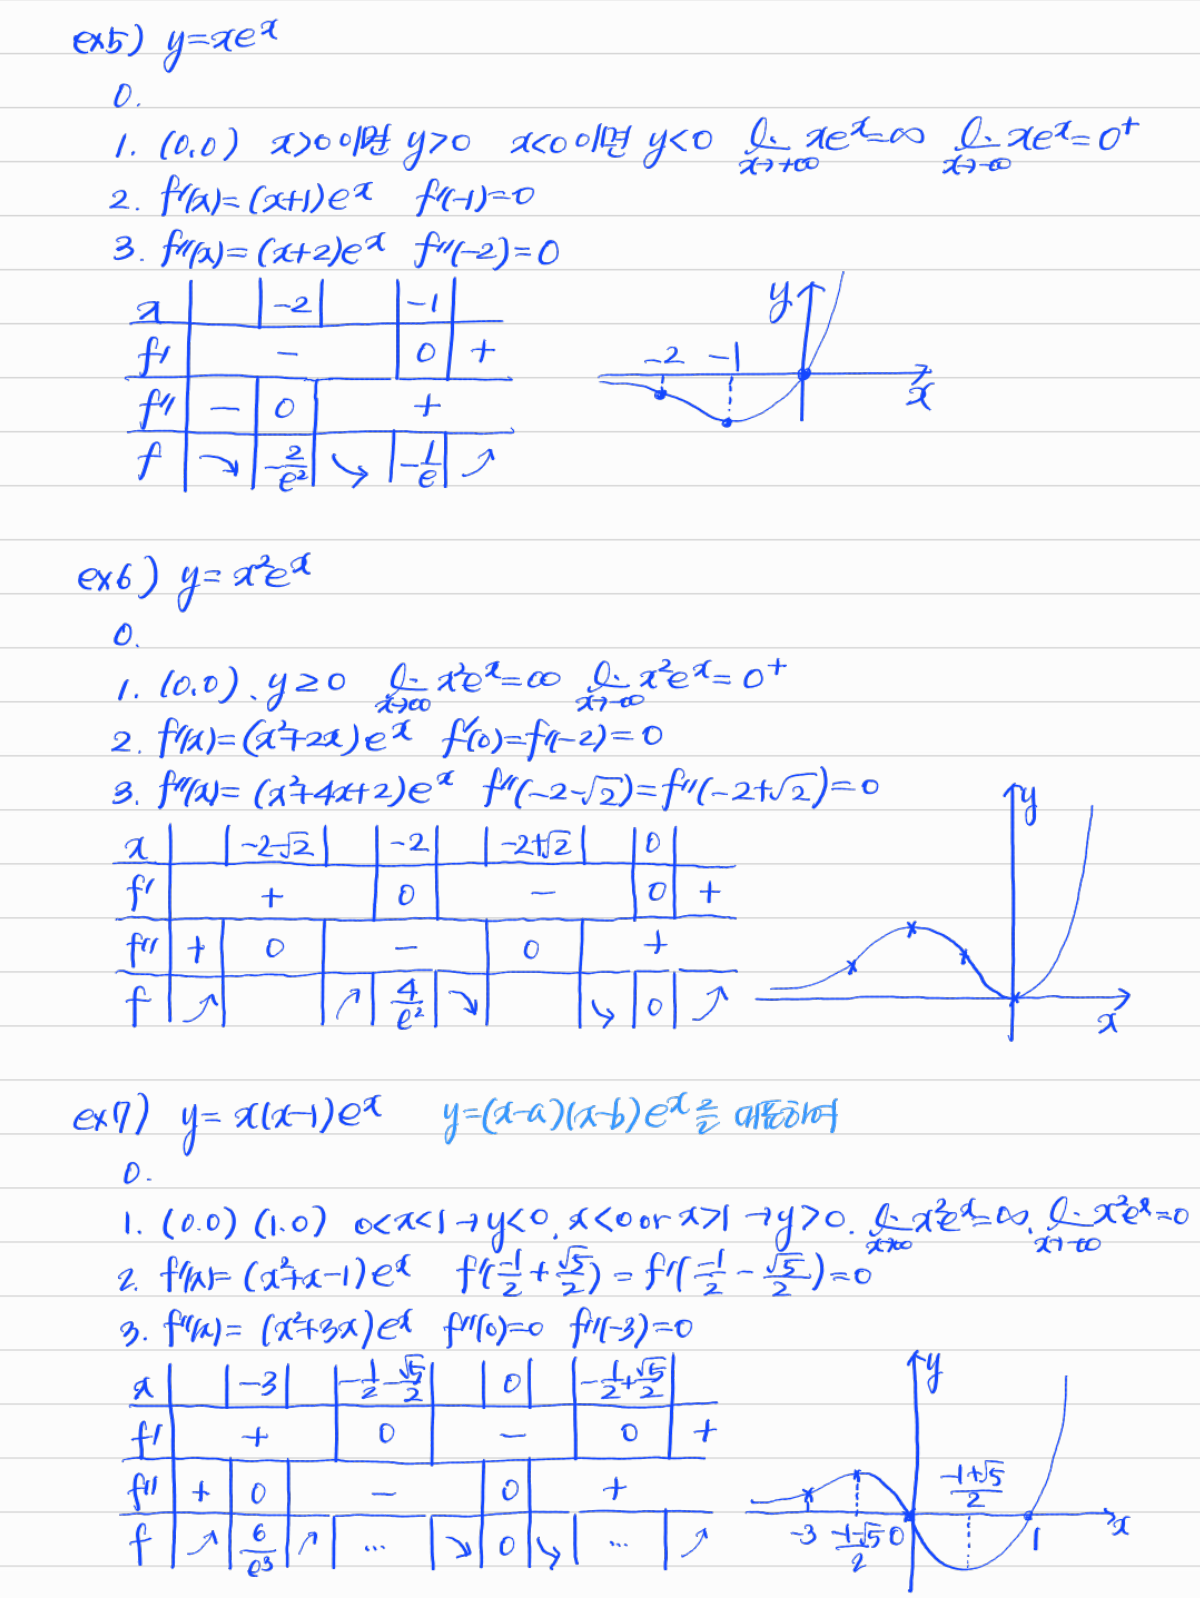 ex5) y=xeˣ
0.
1. (0,0) x>0이면 y>0 x<0이면 y<0 li_{x→+∞} xeˣ=∞ li_{x→-∞} xeˣ=0⁺
2. f'(x)=(x+1)eˣ f'(-1)=0
3. f''(x)=(x+2)eˣ f''(-2)=0
x | | -2 | | -1 |
f' | - | 0 | +
f'' | - | 0 | +
f | ↘ | -2/e² | ↘ | -1/e | ↗
y
-2 -1
x
ex6) y=x²eˣ
0.
1. (0,0). y≥0 li_{x→∞} x²eˣ=∞ li_{x→-∞} x²eˣ=0⁺
2. f'(x)=(x²+2x)eˣ f'(0)=f'(-2)=0
3. f''(x)=(x²+4x+2)eˣ f''(-2-√2)=f''(-2+√2)=0
x | | -2-√2 | | -2 | | -2+√2 | | 0 |
f' | + | 0 | - | 0 | +
f'' | + | 0 | - | 0 | +
f | ↗ | | ↗ | 4/e² | ↘ | | ↘ | 0 | ↗
y
x
ex7) y=x(x-1)eˣ y=(x-a)(x-b)eˣ를 대표하여
0.
1. (0.0) (1.0) 0<x<1→y<0, x<0 or x>1→y>0. li_{x→∞} x²eˣ=∞. li_{x→-∞} x²eˣ=0
2. f'(x)=(x²+x-1)eˣ f'(-1/2+√5/2)=f'(-1/2-√5/2)=0
3. f''(x)=(x²+3x)eˣ f''(0)=0 f''(-3)=0
x | | -3 | | -1/2-√5/2 | | 0 | | -1/2+√5/2 |
f' | + | 0 | - | 0 | +
f'' | + | 0 | - | 0 | +
f | ↗ | 6/e³ | ↗ | ... | ↘ | 0 | ↘ | ... | ↗
y
(-1+√5)/2
-3 (-1-√5)/2 0 1 x